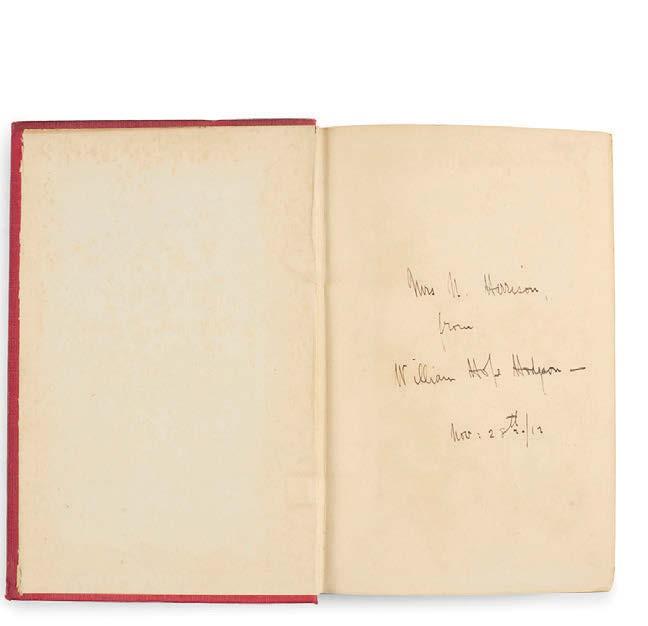 Mrs N. Harrison,
from
William Hope Hodgson —
Nov: 28th./12